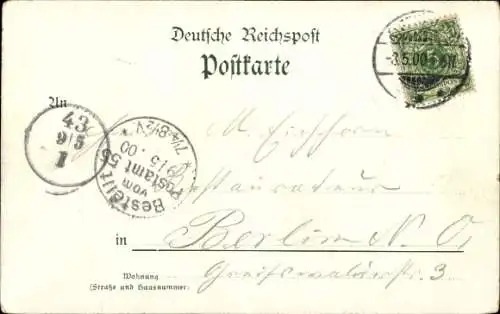 Deutsche Reichspost
Postkarte
-3.5.00
An
43
9/5
1
Bestellt vom Postamt 55
9/5.00
7¼-8½V
M. Eichhorn
Restaurateur
in Berlin N. O.
Greifswalderstr. 3.
Wohnung
(Straße und Hausnummer)